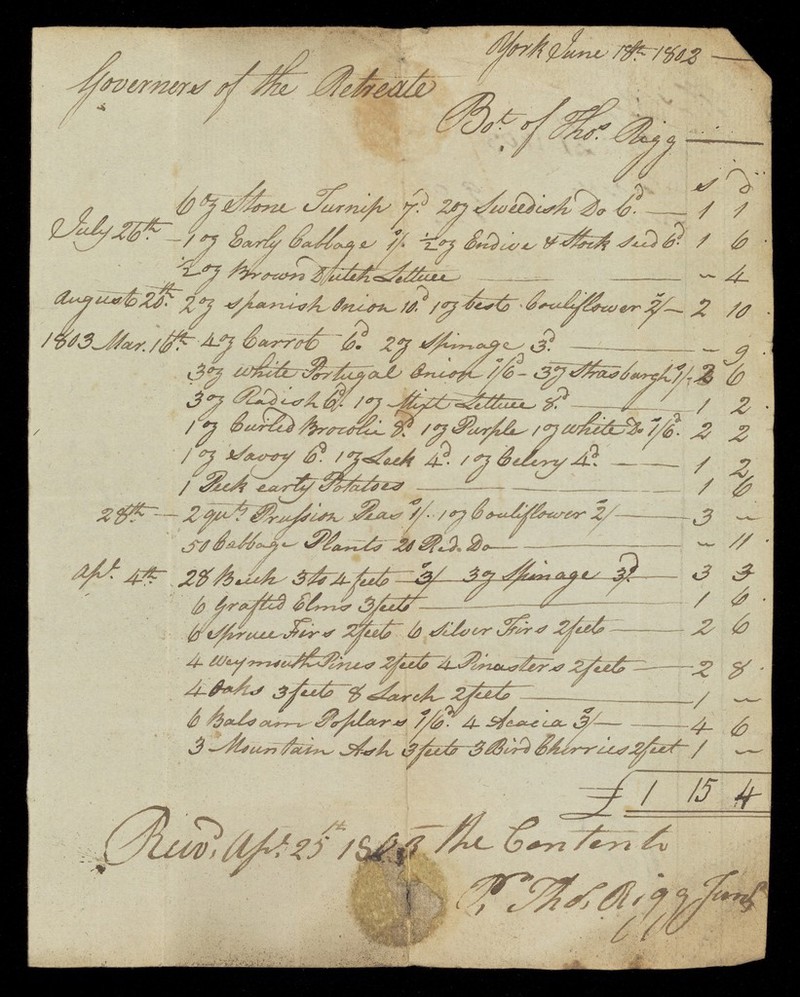 York June 18th 1802
Governers of the Retreate
Bot. of Thos. Rigg
s d
6 oz Stone Turnip 7d 2 oz Sweedish Do 6d 1 1
July 26th 1 oz Early Cabbage 1/. ½ oz Endive & Stock seed 6d 1 6
½ oz Brown Dutch Lettuce " 4
August 20th. 2 oz Spanish Onion 10d 1 oz best Couliflower 2/ 2 10
1803 Mar. 16th 4 oz Carrot 6d 2 oz Spinage 3d " 9
3 oz white Portugal Onion 1/6d 3 oz Strasburgh 1/ 2 6
3 oz Radish 6d. 1 oz Mixt Lettuce 8d 1 2
1 oz Curled Browlie 8d 1 oz Purple 1 oz white Do 1/6d. 2 2
1 oz Savoy 6d 1 oz Leek 4d. 1 oz Celery 4d. 1 2
1 Peck early Potatoes 1 6
28th 2 quts Prussion Peas 1/. 1 oz Couliflower 2/ 3 "
50 Cabbage Plants 20 Red Do " 11
Apr. 4th 28 Beech 3 to 4 feets 3/ 3 oz Spinage 3d. 3 3
6 Grafted Elms 3 feets 1 6
6 Spruce Firs 2 feets 6 Silver Firs 2 feets 2 6
4 Weymouth Pines 2 feets 4 Pinasters 2 feets 2 8
4 Oaks 3 feets 8 Larch 2 feets 1 "
6 Balsam Poplars 1/6d. 4 Acacia 3/ 4 6
3 Mountain Ash 3 feets 3 Bird Cherries 2 feet 1 "
£ 1 15 4
Recvd. Apr. 25th 1803 the Contents
Pr. Thos. Rigg Junr